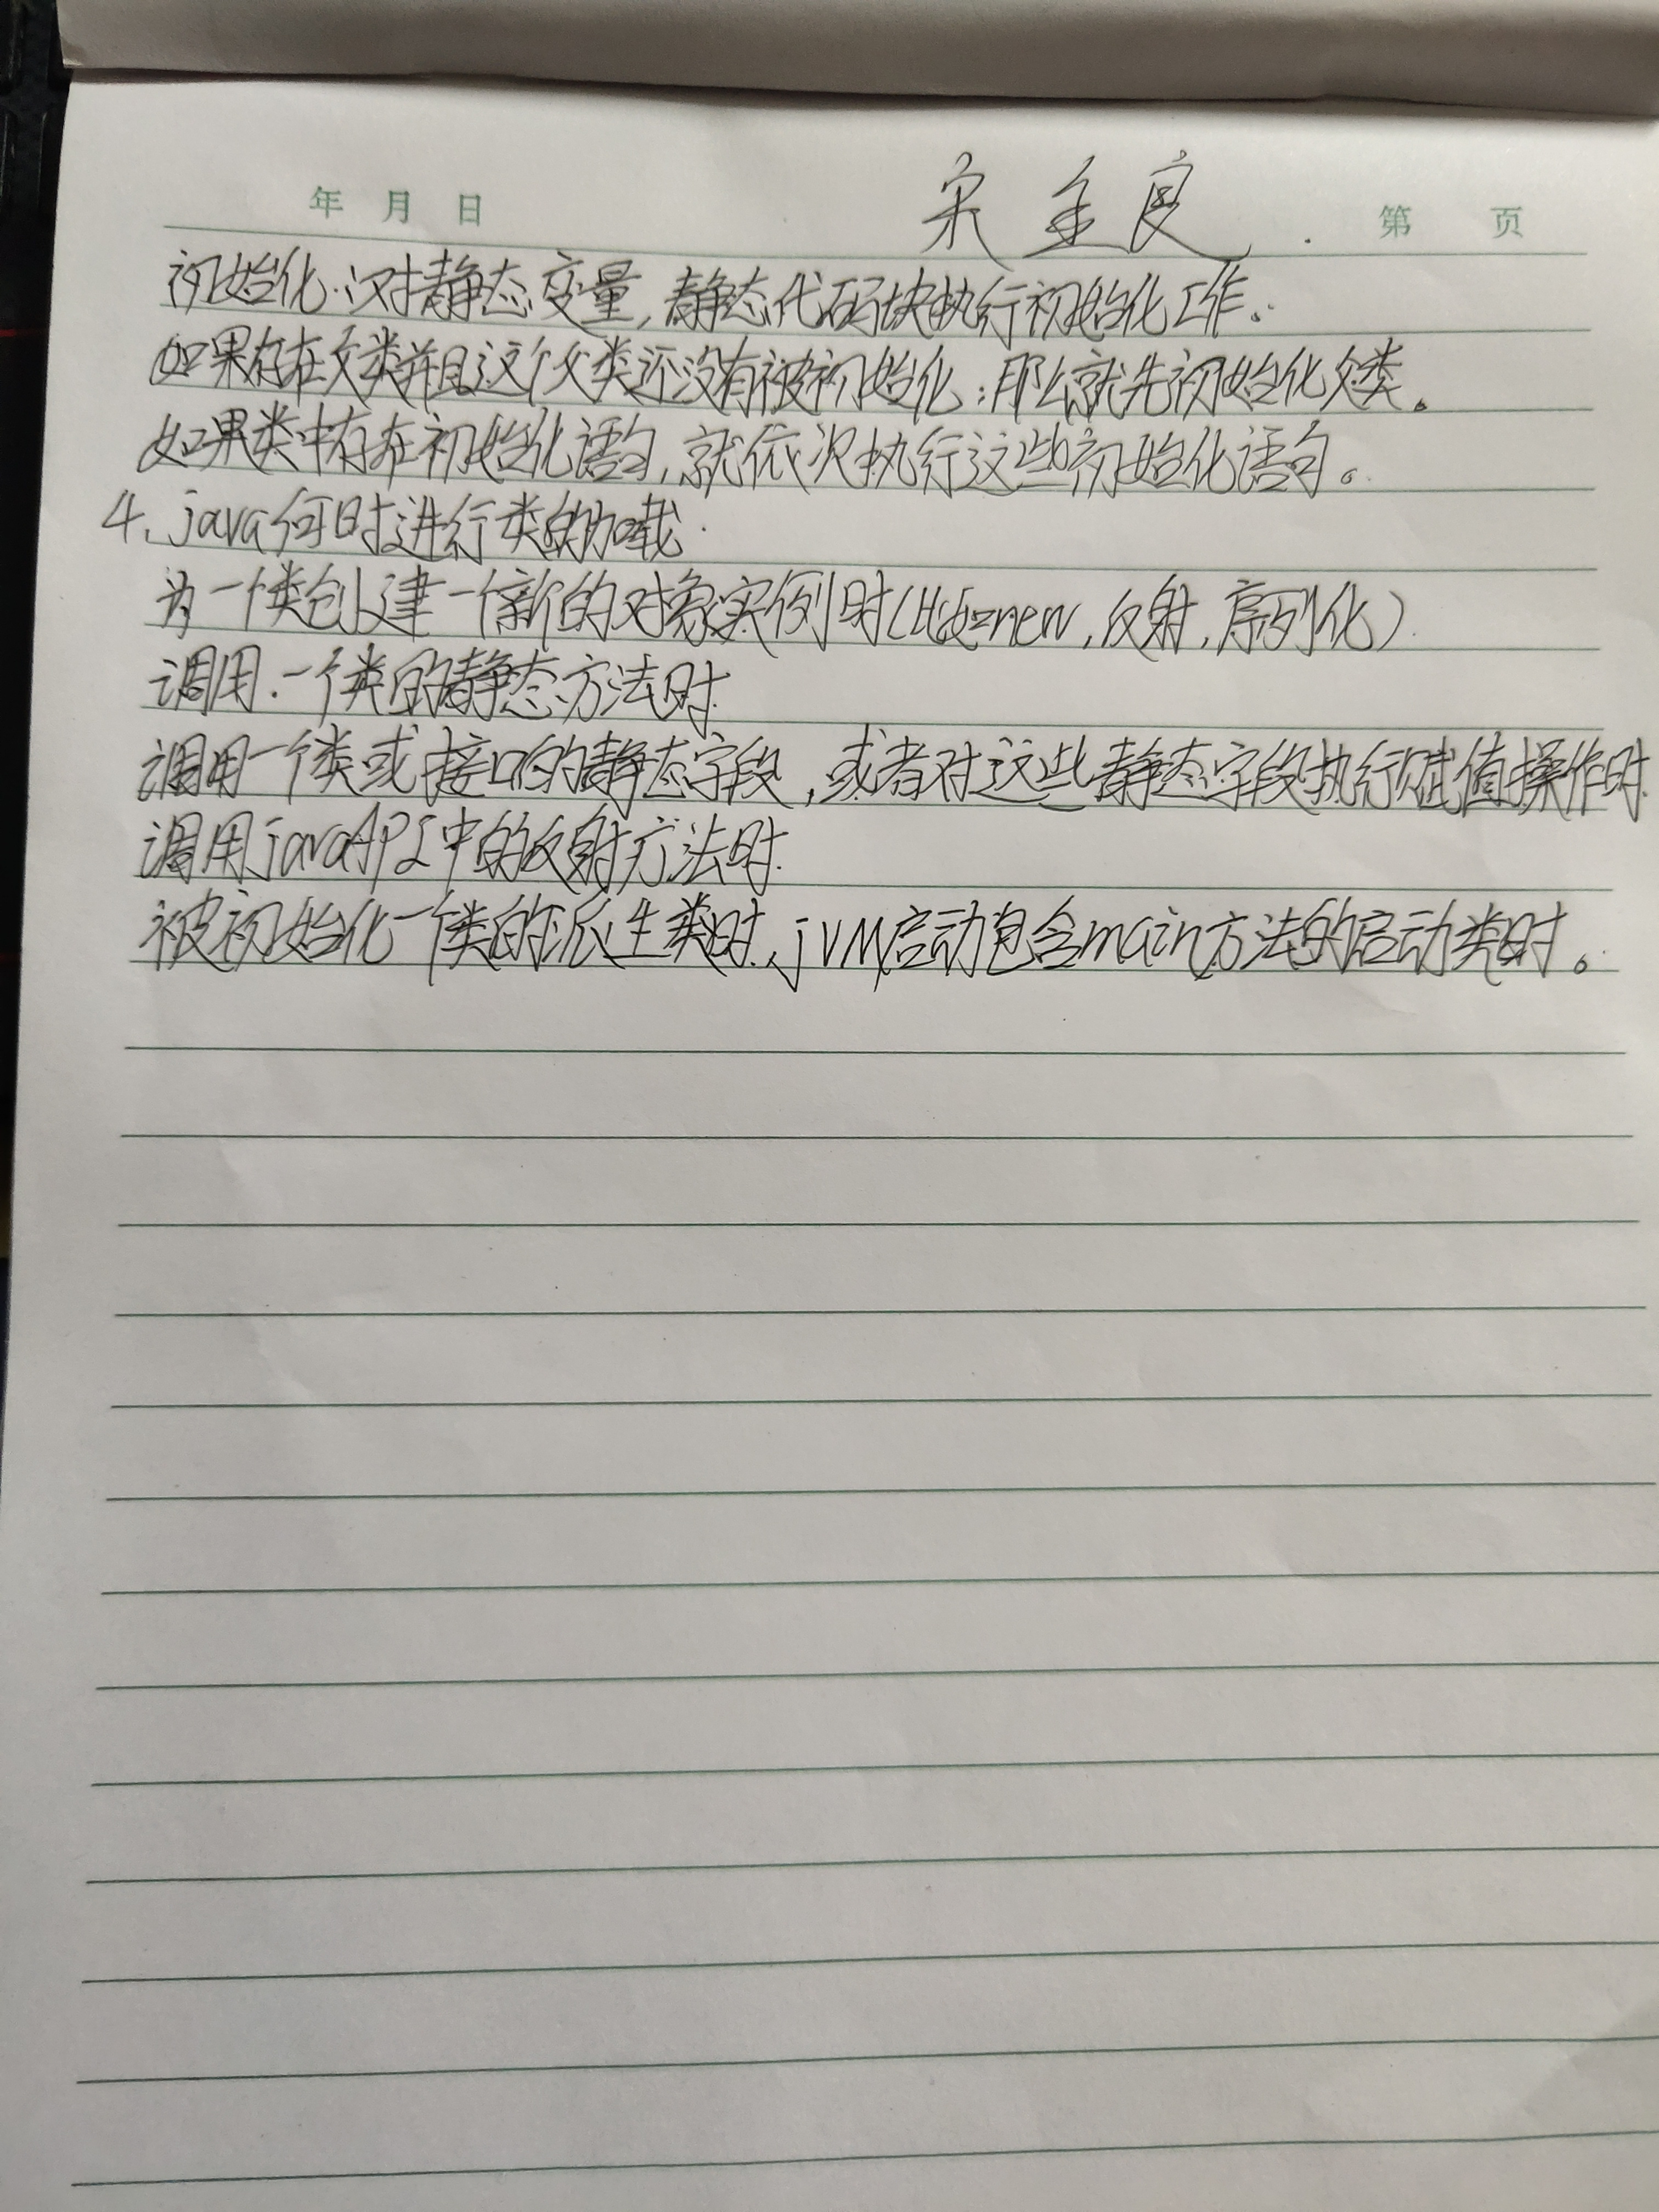 年 月 日 宋金良 第 页
初始化:对静态变量,静态代码块执行初始化工作。
如果存在父类并且这个父类还没有被初始化:那么就先初始化父类。
如果类中存在初始化语句,就依次执行这些初始化语句。
4、java何时进行类的加载
为一个类创建一个新的对象实例时(比如=new,反射,序列化)
调用一个类的静态方法时
调用一个类或接口的静态字段,或者对这些静态字段执行赋值操作时
调用javaAPI中的反射方法时
被初始化一个类的派生类时,jVM启动包含main方法的启动类时。